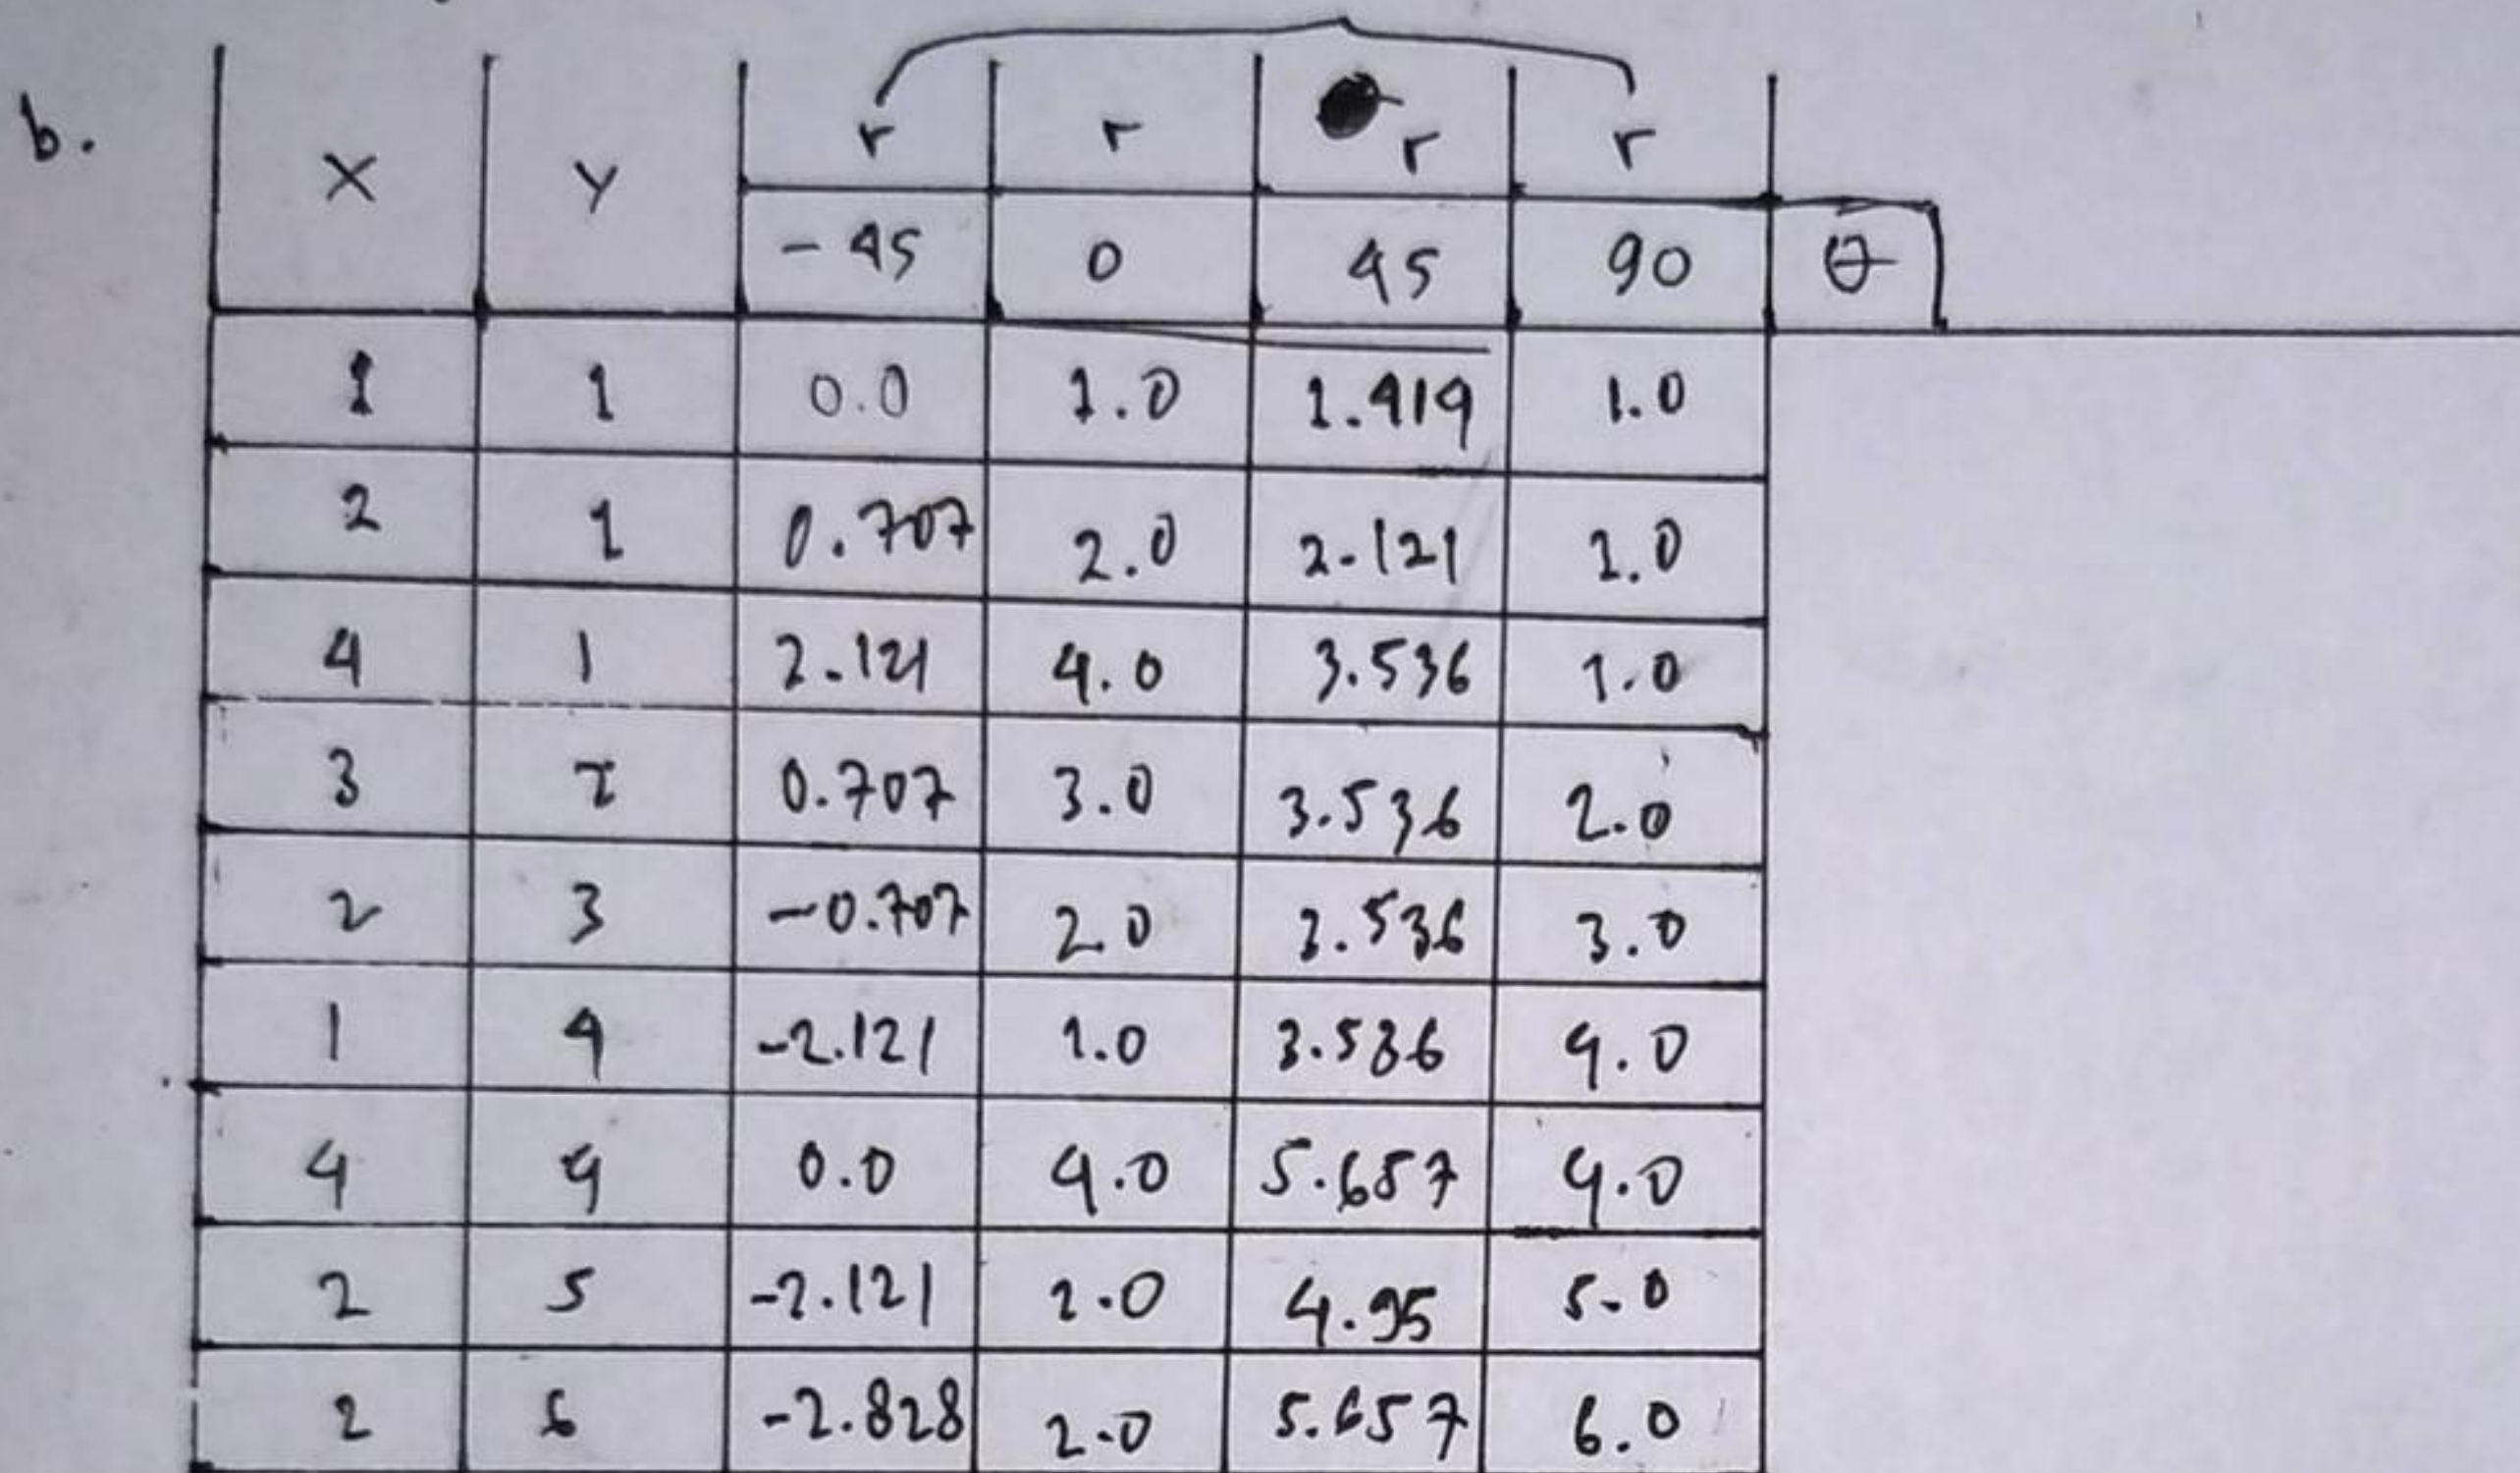 b.
X Y r r r r
-45 0 45 90 θ
1 1 0.0 1.0 1.414 1.0
2 1 0.707 2.0 2.121 1.0
4 1 2.121 4.0 3.536 1.0
3 2 0.707 3.0 3.536 2.0
2 3 -0.707 2.0 3.536 3.0
1 4 -2.121 1.0 3.536 4.0
4 4 0.0 4.0 5.657 4.0
2 5 -2.121 2.0 4.95 5.0
2 6 -2.828 2.0 5.657 6.0